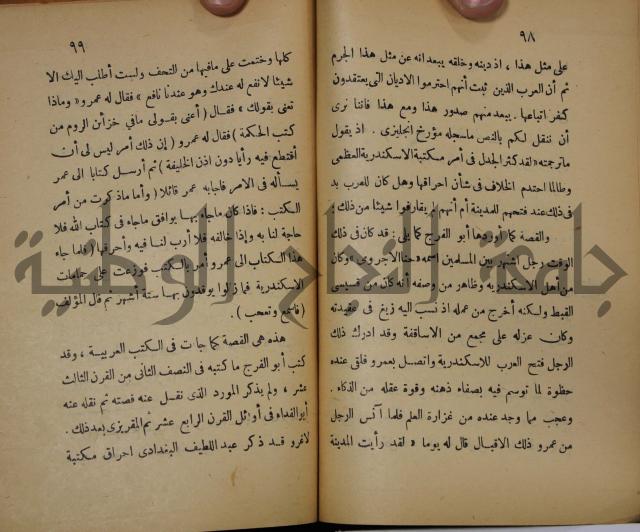 ٩٨
على مثل هذا ، اذ دينه وخلقه يبعدانه عن مثل هذا الجرم
ثم أن العرب الذين ثبت أنهم احترموا الاديان التى يعتقدون
كفر اتباعها . يبعد منهم صدور هذا ومع هذا فاننا نرى
أن ننقل لكم بالنص ماسجله مؤرخ انجليزى . اذ يقول
ما ترجمته « لقد كثر الجدل فى أمر مكتبة الاسكندرية العظمى
وطالما احتدم الخلاف فى شأن احراقها وهل كان للعرب يد
فى ذلك عند فتحهم للمدينة أم أنهم لم يقارفوا شيئا من ذلك .
والقصة كما أوردها أبو الفرج كما يلى : قد كان فى ذلك
الوقت رجل اشتهر بين المسلمين اسمه « حنا الاجرومى » وكان
من أهل الاسكندرية وظاهر من وصفه أنه كان من قسيسى
القبط ولكنه أخرج من عمله اذ نسب اليه زيغ فى عقيدته
وكان عزله على مجمع من الاساقفة وقد ادرك ذلك
الرجل فتح العرب للاسكندرية واتصل بعمرو فلقى عنده
حظوة لما توسم فيه بصفاء ذهنه وقوة عقله من الذكاء .
وعجب مما وجد عنده من غزارة العلم فلما آنس الرجل
من عمرو ذلك الاقبال قال له يوما « لقد رأيت المدينة
٩٩
كلها وختمت على مافيها من التحف ولست أطلب اليك الا
شيئا لا نفع له عندك وهو عندنا نافع » فقال له عمرو « وماذا
تعنى بقولك » فقال ( أعنى بقولى مافي خزائن الروم من
كتب الحكمة ) فقال له عمرو ( إن ذلك أمر ليس لى أن
أقتطع فيه رأيا دون اذن الخليفة ) ثم أرسل كتابا الى عمر
يسأله فى الامر فاجابه عمر قائلا ( وأما ما ذكرت من أمر
الكتب : فاذا كان ماجاء بها يوافق ماجاء فى كتاب الله فلا
حاجة لنا به وإذا خالفه فلا أرب لنا فيه وأحرقها ( فلما جاء
هذا الكتاب الى عمرو أمر بالكتب فوزعت على حمامات
الاسكندرية فما زالوا يوقدون بها ستة أشهر ثم قال المؤلف
( فاسمع وتعجب ) .
هذه هى القصة كما جاءت فى الكتب العربية ، وقد
كتب أبو الفرج ما كتبه فى النصف الثانى من القرن الثالث
عشر ، ولم يذكر المورد الذى نقل عنه قصته ثم نقله عنه
أبو الفداء فى أوائل القرن الرابع عشر ثم المقريزى بعد ذلك .
لاغرو قد ذكر عبد اللطيف البغدادى احراق مكتبة
جامعة النجاح الوطنية